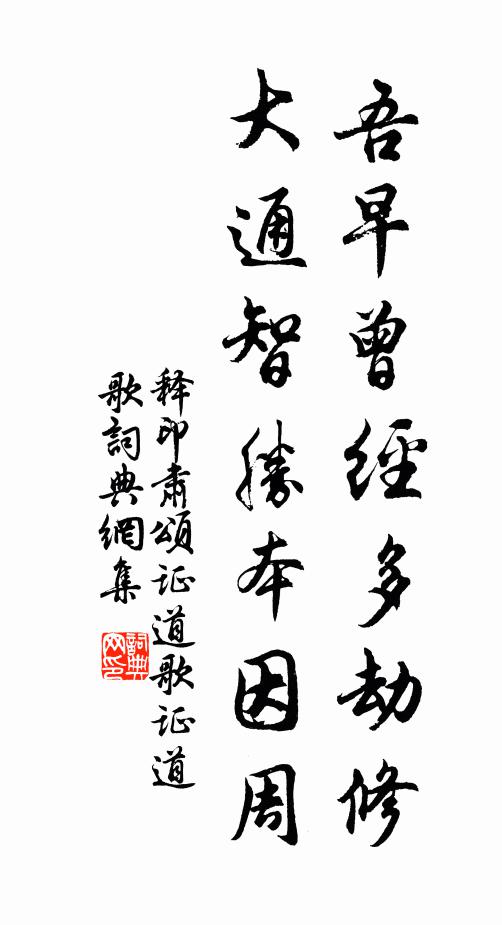 吾早曾經多劫修
大通智勝本因周
释印肃頌证道歌证道
歌詞典網集
詞典网印